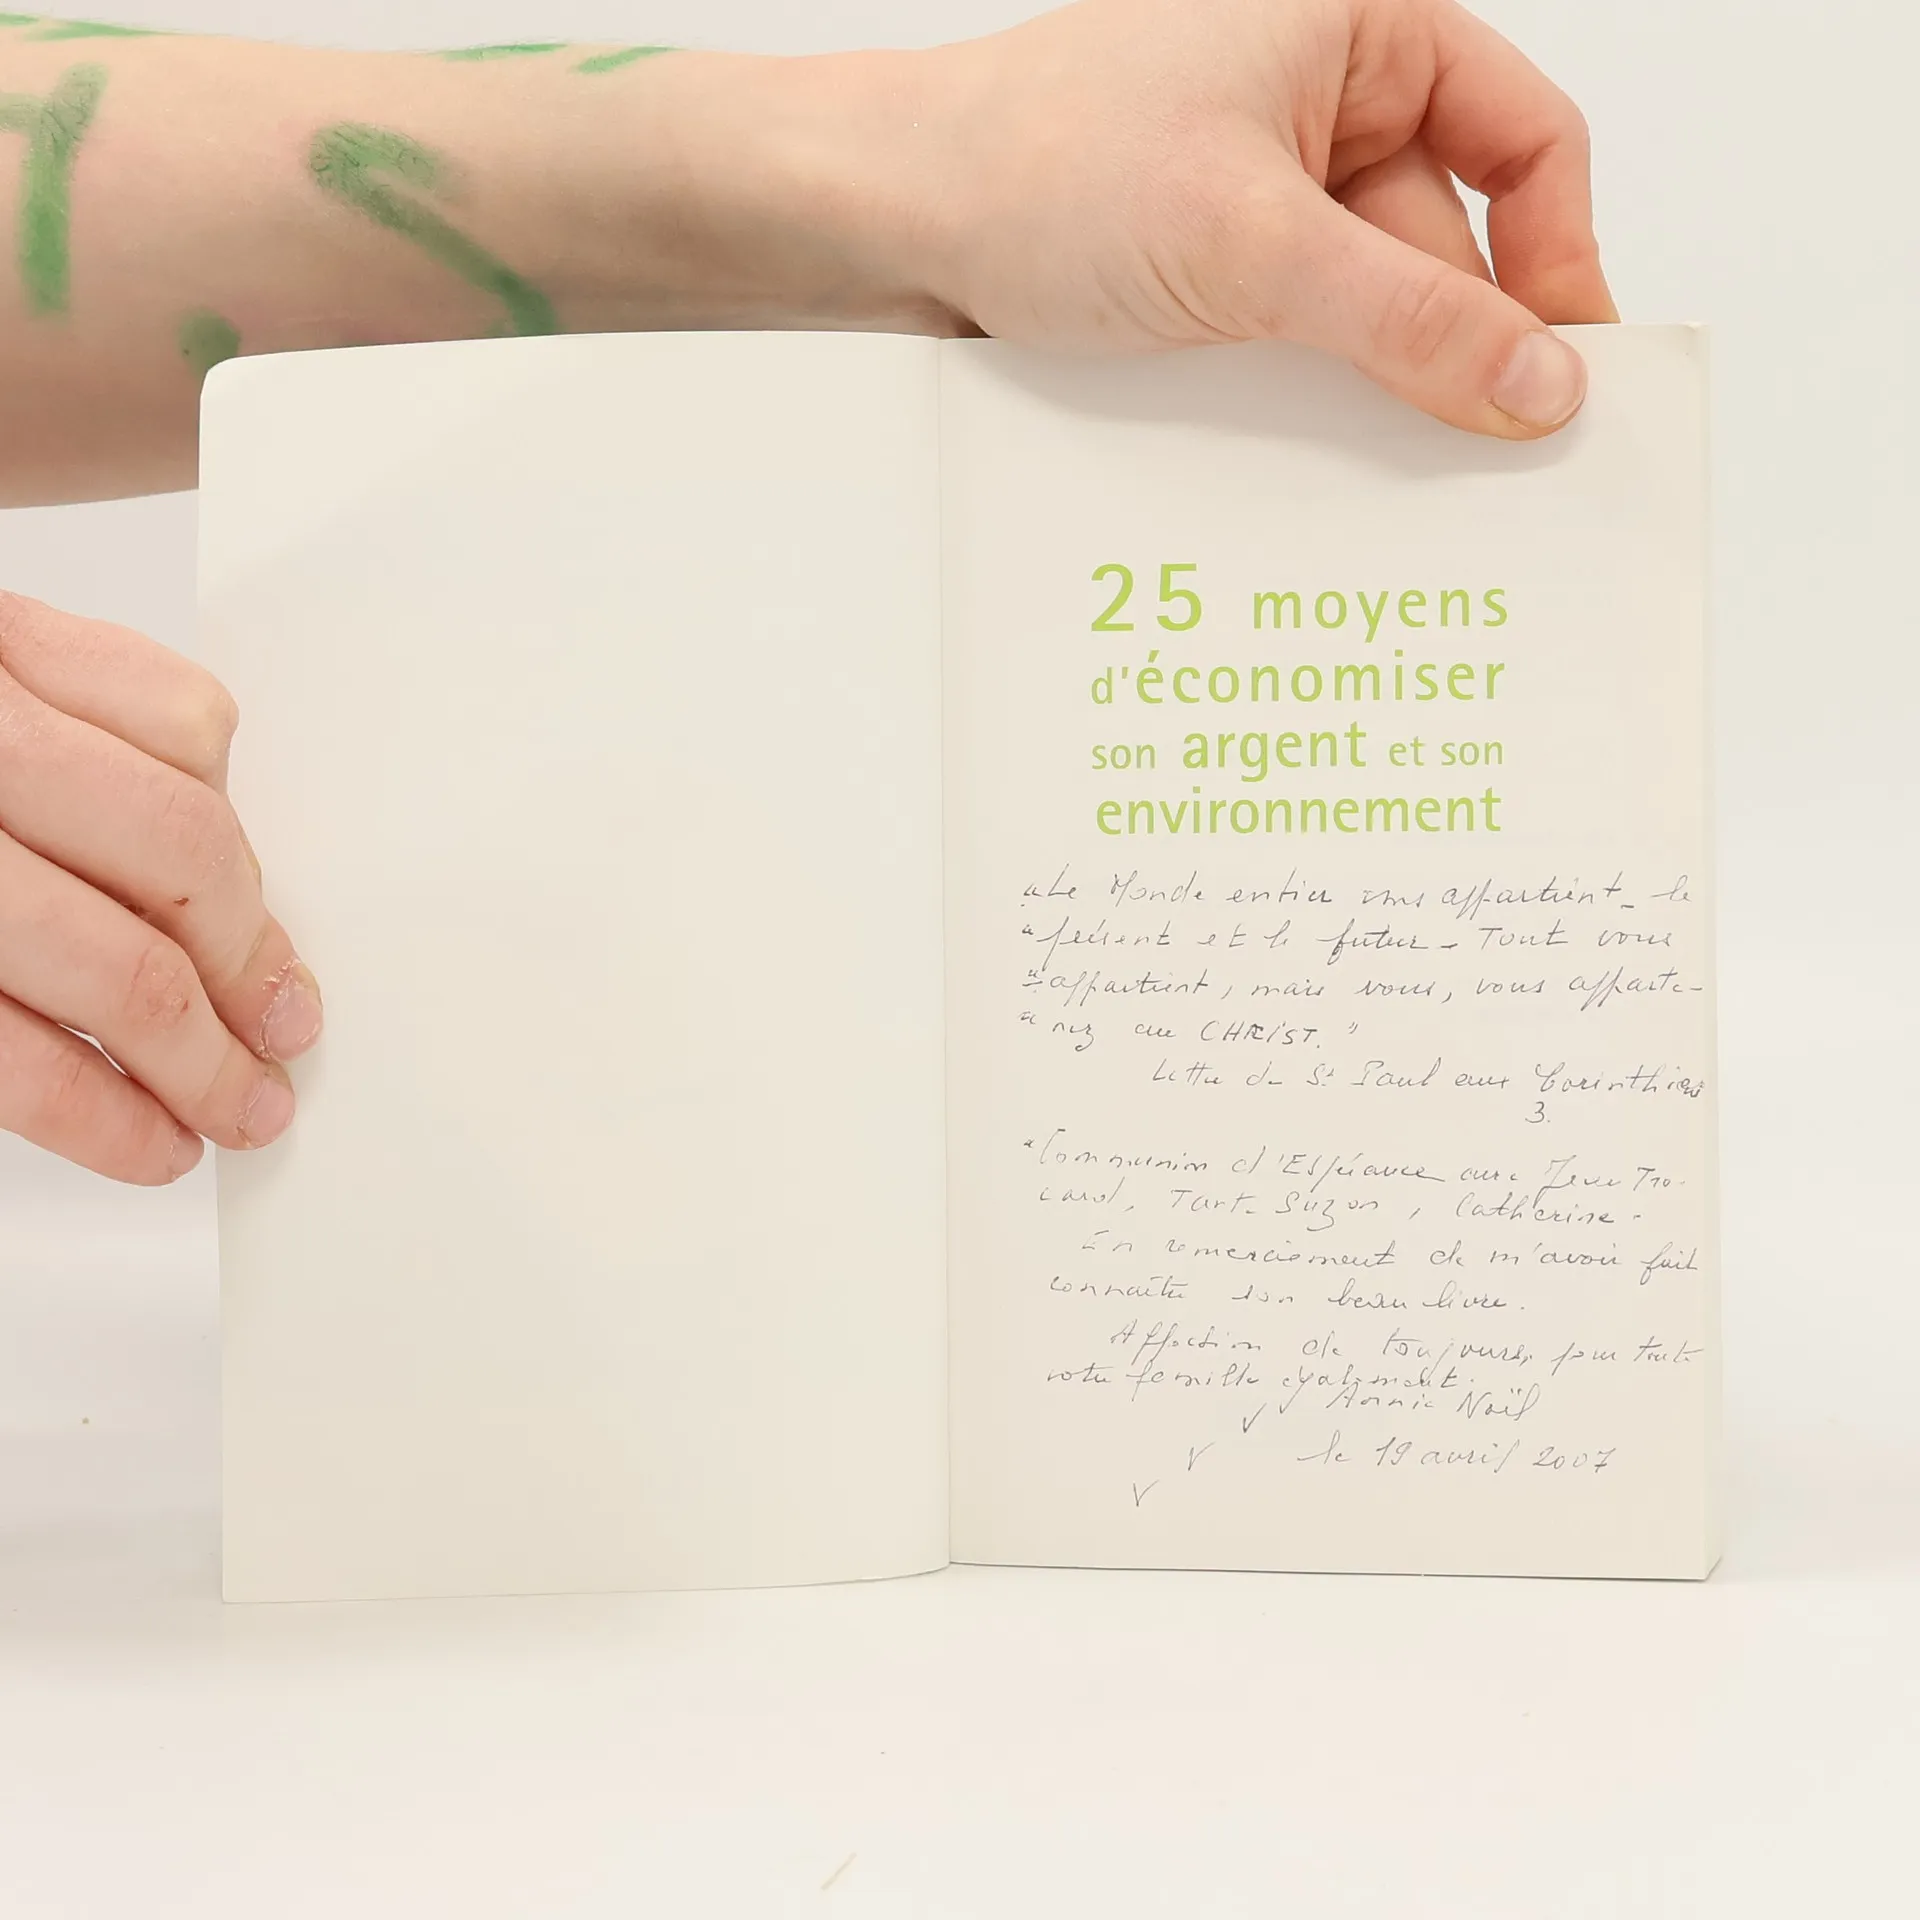 25 moyens
d'économiser
son argent et son
environnement
"Le Monde entier vous appartient_ le
"présent et le futur_ Tout vous
"appartient, mais vous, vous apparte-
"nez au CHRIST."
Lettre de St Paul aux Corinthiens
3.
"Communion d'Espérance avec Jean Tro-
card, Tart. Suzon, Catherine.
En remerciement de m'avoir fait
connaître son beau livre.
Affection de toujours, pour toute
votre famille également.
Annie Noël
le 19 avril 2007